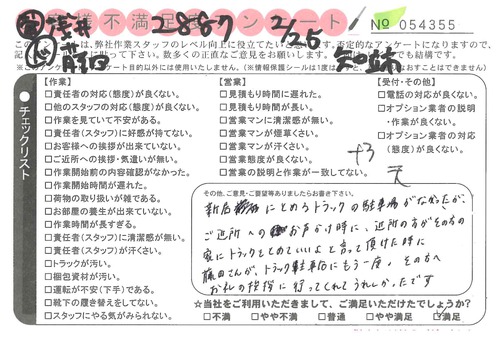 営 浅井 2887 2/25 No 054355
作 藤田
お客様不満足度アンケート
このアンケートは、弊社作業スタッフのレベル向上に役立てたいと思います。否定的なアンケートになりますので、
数多くの正直なご意見をお願いします。
※このアンケート目的以外には使用いたしません。
チェックリスト
【作業】
□責任者の対応(態度)が良くない。
□他のスタッフの対応(態度)が良くない。
□作業を見ていて不安がある。
□責任者(スタッフ)に好感が持てない。
□お客様への挨拶が出来ていない。
□ご近所への挨拶・気遣いが無い。
□作業開始前の内容確認がなかった。
□作業開始時間が遅れた。
□荷物の取り扱いが雑である。
□お部屋の養生が出来ていない。
□作業時間が長すぎる。
□責任者(スタッフ)に清潔感が無い。
□責任者(スタッフ)が汗くさい。
□トラックが汚い。
□梱包資材が汚い。
□運転が不安(下手)である。
□靴下の履き替えをしてない。
□スタッフにやる気がみられない。
【営業】
□見積もり時間に遅れた。
□見積もり時間が長い。
□営業マンに清潔感が無い。
□営業マンが煙草くさい。
□営業マンが汗くさい。
□営業態度が良くない。
□営業の説明と作業が一致してない。
【受付・その他】
□電話の対応が良くない。
□オプション業者の説明
・作業が良くない。
□オプション業者の対応
(態度)が良くない。
+3
その他、ご意見・ご要望等ありましたらお書き下さい。
新居にとめるトラックの駐車場がなかったが、
ご近所へのお声かけ時に、近所の方がその方の
家にトラックをとめていいよと言って頂けた時に
藤田さんが、トラック駐車后にもう一度、その方へ
お礼の挨拶に行ってくれてうれしかったです
☆当社をご利用いただきまして、ご満足いただけたでしょうか?
□不満 □やや不満 □普通 □やや満足 ☑満足